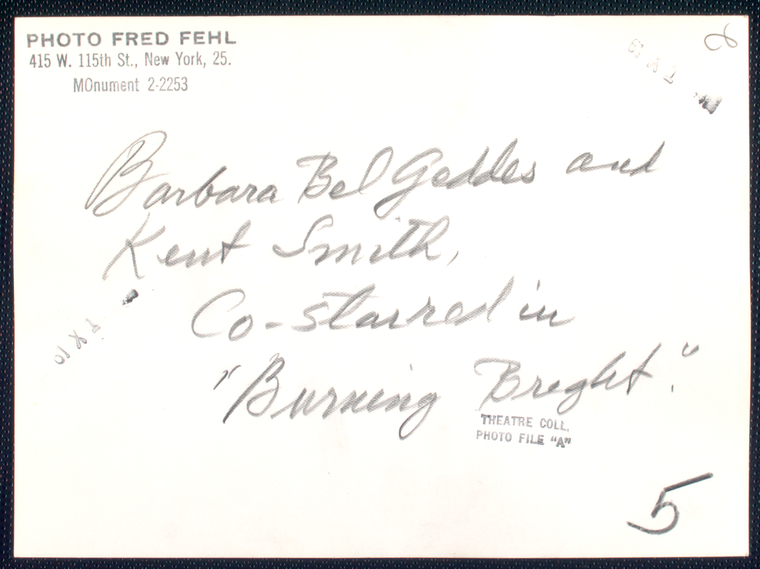 PHOTO FRED FEHL
415 W. 115th St., New York, 25.
MOnument 2-2253
Barbara Bel Geddes and
Kent Smith,
Co-starred in
"Burning Breght."
THEATRE COLL.
PHOTO FILE "A"
5